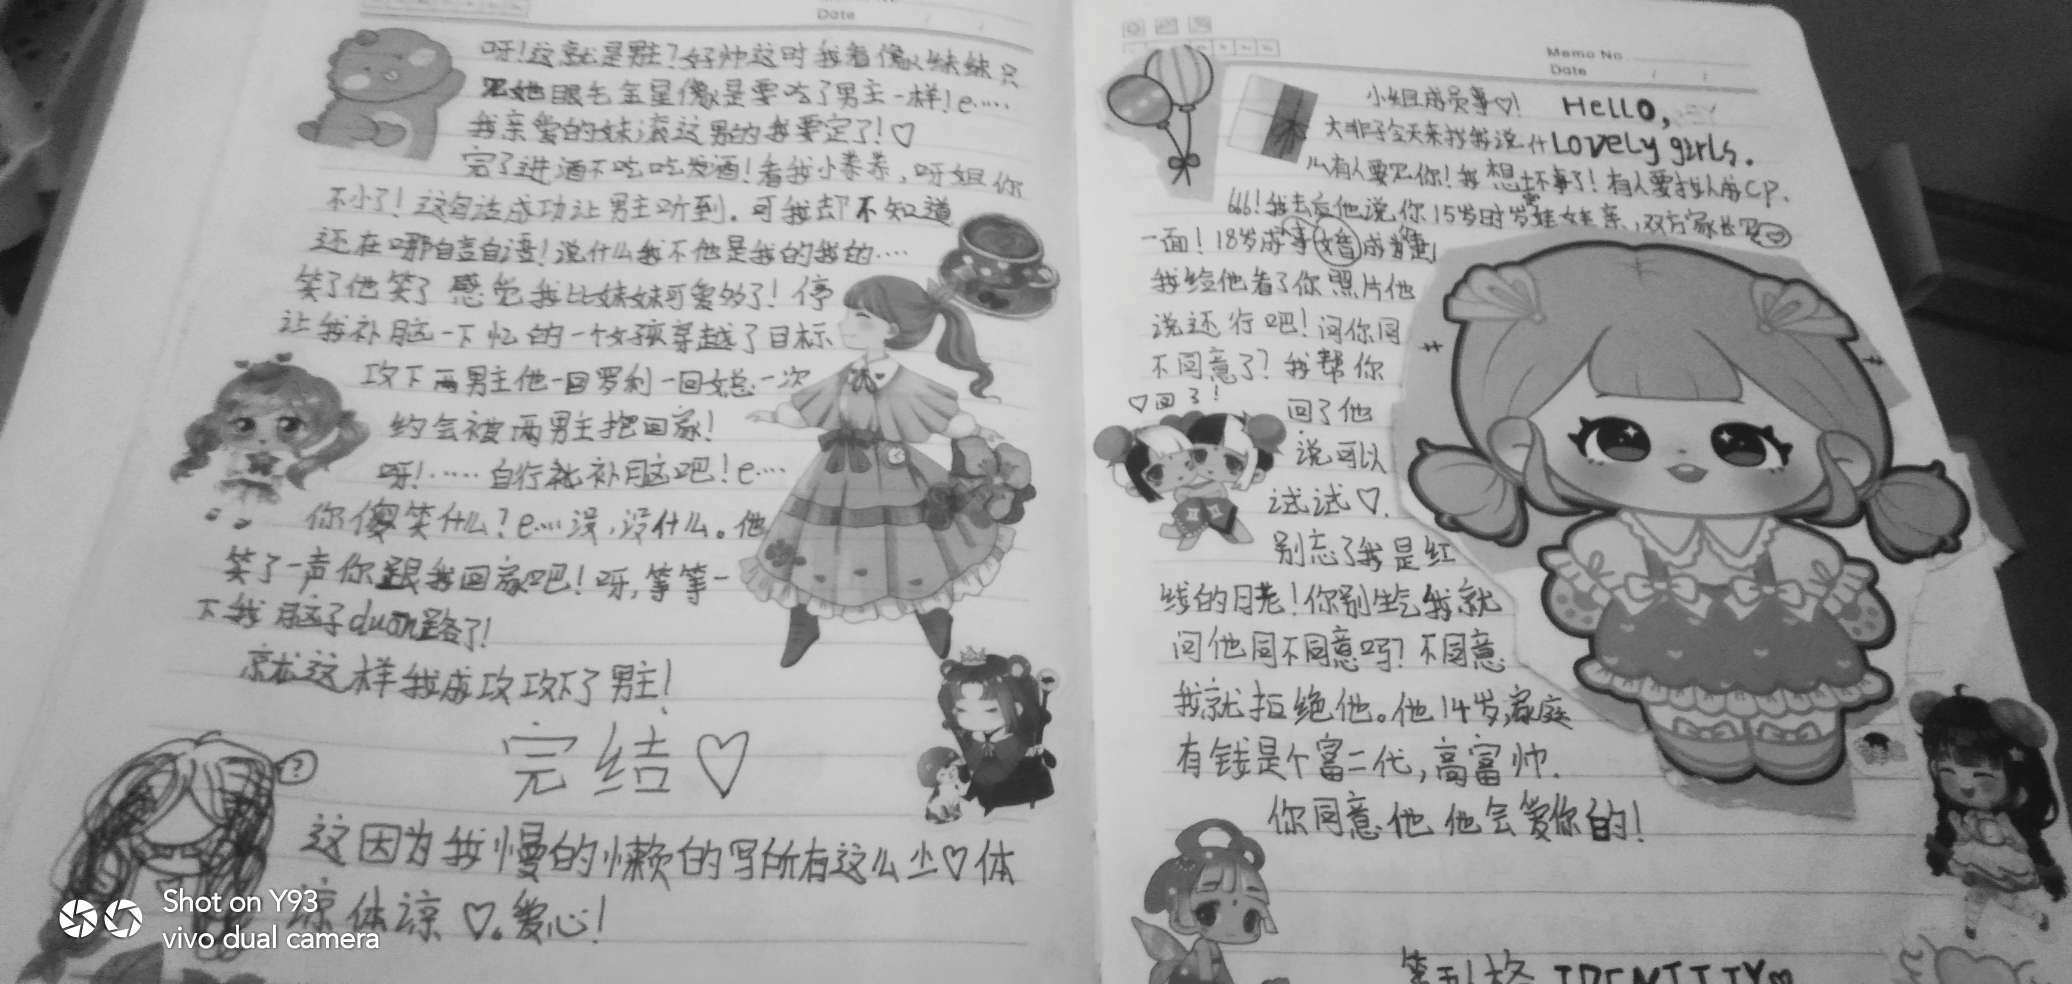 Date
呀！这就是男主？好帅这时我看像妹妹只
见她眼毛金星像是要吃了男主一样！e……
我亲爱的妹滚这男的我要定了！♡
完了进酒不吃吃发酒！看我小乖乖，呀姐你
不小了！这句话成功让男主听到。可我却不知道
还在哪自言自语！说什么我不他是我的我的……
笑了他笑了感觉我比妹妹可爱多了！停
让我补脑一下忆的一个女孩穿越了目标
攻下两男主他一回罗刹一回总一次
约会被两男主抱回家！
呀！……自行就补脑吧！e……
你傻笑什么？e……没，没什么。他
笑了一声你跟我回家吧！呀，等等一
下我脑子duan路了！
就这样我成攻攻下了男主！
完结♡
这因为我慢的懒的写所有这么少♡体
谅体谅♡。爱心！
?
Shot on Y93
vivo dual camera
Memo No.
Date
小姐成员事♡！ Hello,
大非子今天来找我说什 Lovely girls.
么有人要见你！我想坏事了！有人要找人成CP.
666！我去后他说你15岁时岁娃娃亲，双方家长见
一面！18岁成事婚成
我给他看了你照片他
说还行吧！问你同
不同意了？我帮你
♡回了！
回了他
说可以
试试♡.
别忘了我是红
线的月老！你别生气我就
问他同不同意吗？不同意
我就拒绝他。他14岁，家庭
有钱是个富二代，高富帅.
你同意他他会爱你的！
第五人格 IDENTITY